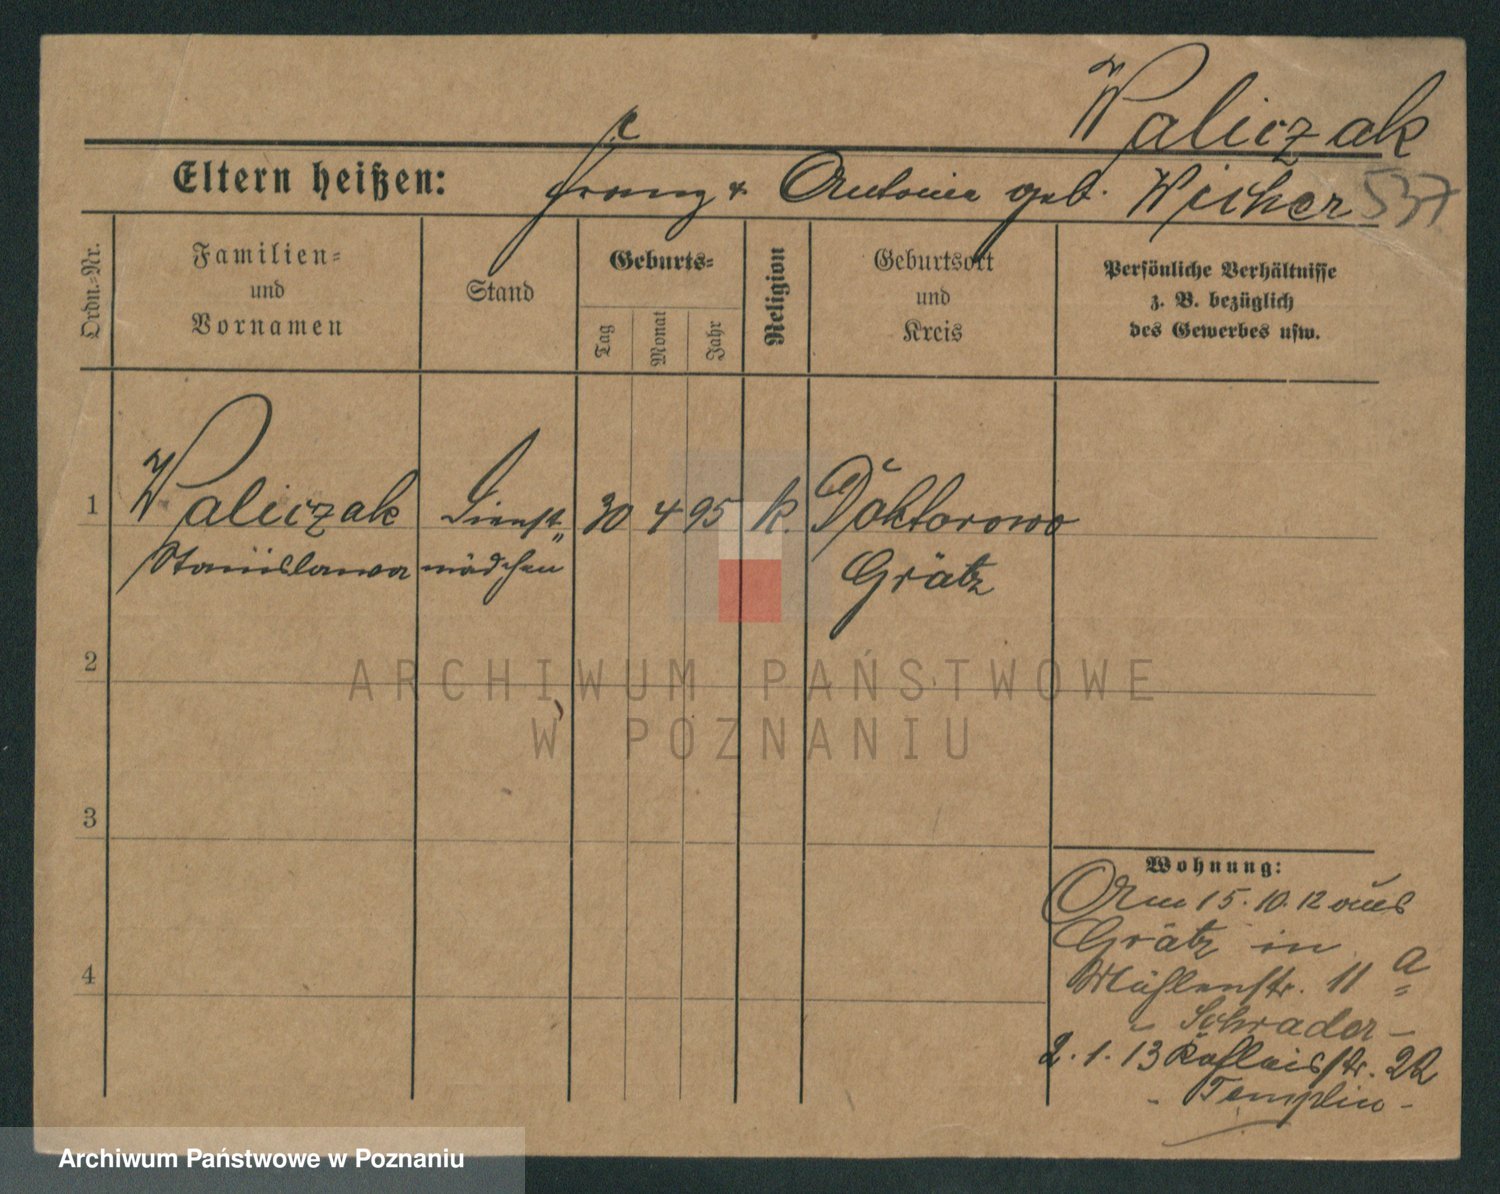 Waliczak
Eltern heißen: Franz & Antonie geb. Wicher 537
Ordn.-Nr.
Familien-
und
Vornamen
Stand
Geburts-
Tag
Monat
Jahr
Religion
Geburtsort
und
Kreis
Persönliche Verhältnisse
z. B. bezüglich
des Gewerbes usw.
1 Waliczak Dienst„ 30 4 95 k. Doktorowo
Stanislawa mädchen Grätz
2
3
4
Wohnung:
Am 15.10.12 aus
Grätz in
Mühlenstr. 11 a
- Schrader -
2.1.13
- Templin -
ARCHIWUM PAŃSTWOWE
W POZNANIU
Archiwum Państwowe w Poznaniu